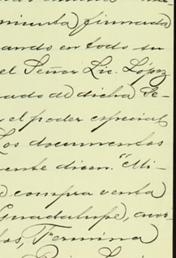 miento firmado
ando en todo su
el Señor Lic. López
ado de dicha Se-
el poder especial
Los documentos
ente dicen: "Mi-
compra venta
Guadalupe, que
los, Fermina